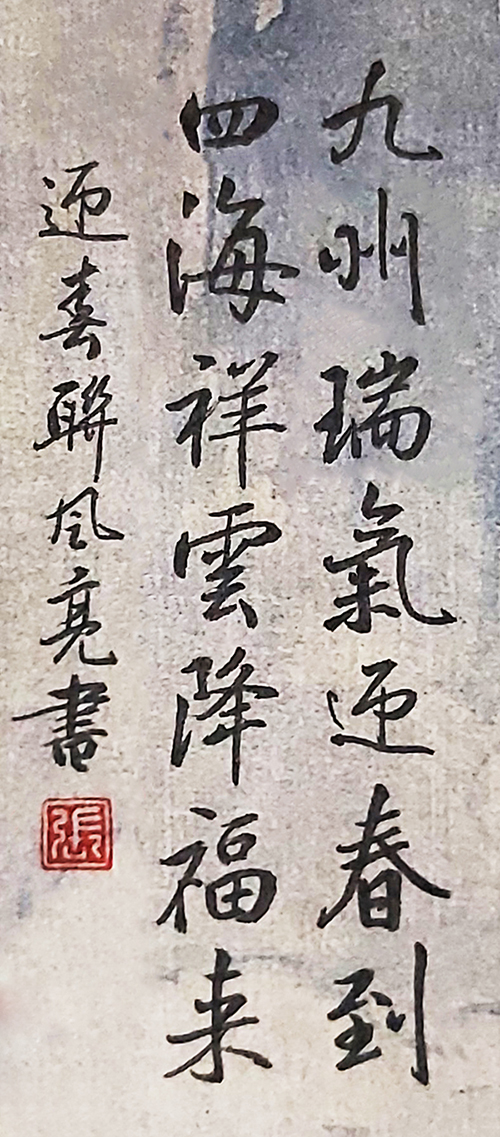 九州瑞氣迎春到
四海祥雲降福来
迎喜聯风亮書
張